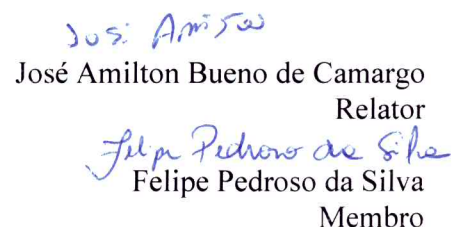 José Amilton
José Amilton Bueno de Camargo
Relator
Felipe Pedroso da Silva
Felipe Pedroso da Silva
Membro